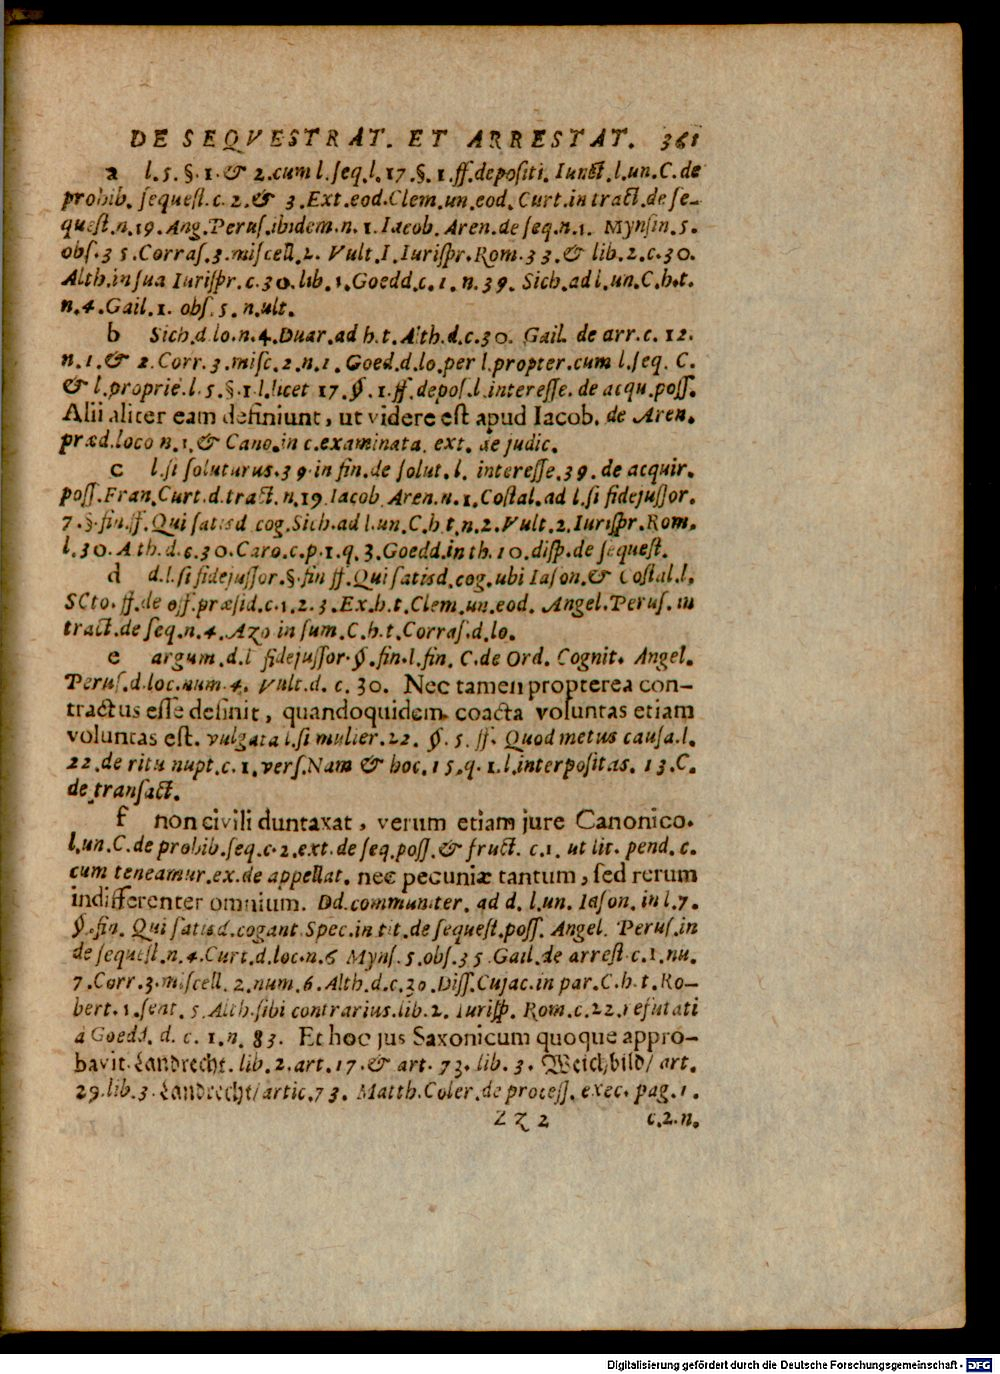 DE SEQVESTRAT. ET ARRESTAT. 361
a l.5.§.1.& 2.cum l.seq.l.17.§.1.ff.depositi. Iunct.l.un.C.de
prohib. sequest.c.2.& 3.Ext.eod.Clem.un.eod. Curt.in tract.de se-
quest.n.19.Ang.Perus.ibidem.n.1.Iacob.Aren.de seq.n.1. Mynsin.5.
obs.35.Corras.3.miscell.2. Vult.I.Iurispr.Rom.33.& lib.2.c.30.
Alth.in sua Iurispr.c.30.lib.1.Goedd.c.1.n.39. Sich.ad l.un.C.h.t.
n.4.Gail.1. obs.5.n.ult.
b Sich.d.lo.n.4.Duar.ad h.t.Alth.d.c.30. Gail. de arr.c.12.
n.1.& 2.Corr.3.misc.2.n.1.Goed.d.lo.per l.propter.cum l.seq. C.
& l.proprie.l.5.§.1.l.licet 17.§.1.ff.depos.l.interesse.de acqu.poss.
Alii aliter eam definiunt, ut videre est apud Iacob. de Aren.
præd.loco n.1.& Cano.in c.examinata. ext. de judic.
c l.si soluturus.39.in fin.de solut.l. interesse.39.de acquir.
poss.Fran.Curt.d.tract.n.19.Iacob.Aren.n.1.Costal.ad l.si fidejussor.
7.§.fin.ff.Qui satisd cog.Sich.ad l.un.C.h t.n.2.Vult.2.Iurispr.Rom.
l.30.A th.d.c.30.Caro.c.p.1.q.3.Goedd.in th.10.disp.de sequest.
d d.l.si fidejussor.§.fin ff.Qui satisd.cog.ubi Iason.& Costal.l.
SCto.ff.de off.præsid.c.1.2.3.Ex.h.t.Clem.un.eod. Angel.Perus.in
tract.de seq.n.4.Azo in sum.C.h.t.Corras.d.lo.
e argum.d.l fidejussor.§.fin.l.fin. C.de Ord. Cognit. Angel.
Perus.d.loc.num.4. Vult.d. c.30. Nec tamen propterea con-
tractus esse definit, quandoquidem coacta voluntas etiam
voluntas est. vulgata l.si mulier.22. §.5. ff. Quod metus causa.l.
22.de ritu nupt.c.1.vers.Nam & hoc.15.q.1.l.interpositas.13.C.
de transact.
f non civili duntaxat, verum etiam jure Canonico.
l.un.C.de prohib.seq.c.2.ext.de seq.poss.& fruct. c.1. ut lit. pend.c.
cum teneamur.ex.de appellat. nec pecuniæ tantum, sed rerum
indifferenter omnium. Dd.communiter. ad d.l.un. Iason. in l.7.
§.fin. Qui satisd.cogant.Spec.in tit.de sequest.poss. Angel. Perus.in
de sequest.n.4.Curt.d.loc.n.6 Myns.5.obs.35.Gail.de arrest.c.1.nu.
7.Corr.3.miscell. 2.num.6.Alth.d.c.30.Diss.Cujac.in par.C.h.t.Ro-
bert.1.sent.5.Alth.sibi contrarius.lib.2. Iurisp. Rom.c.22.refutati
a Goedd. d. c. 1.n. 83. Et hoc jus Saxonicum quoque appro-
bavit. Landrecht. lib.2.art.17.& art. 73.lib.3. Weichbild/ art.
29.lib.3.Landrecht/artic.73. Matth.Coler.de process.exec.pag.1.
Z z 2 c.2.n.
Digitalisierung gefördert durch die Deutsche Forschungsgemeinschaft - DFG